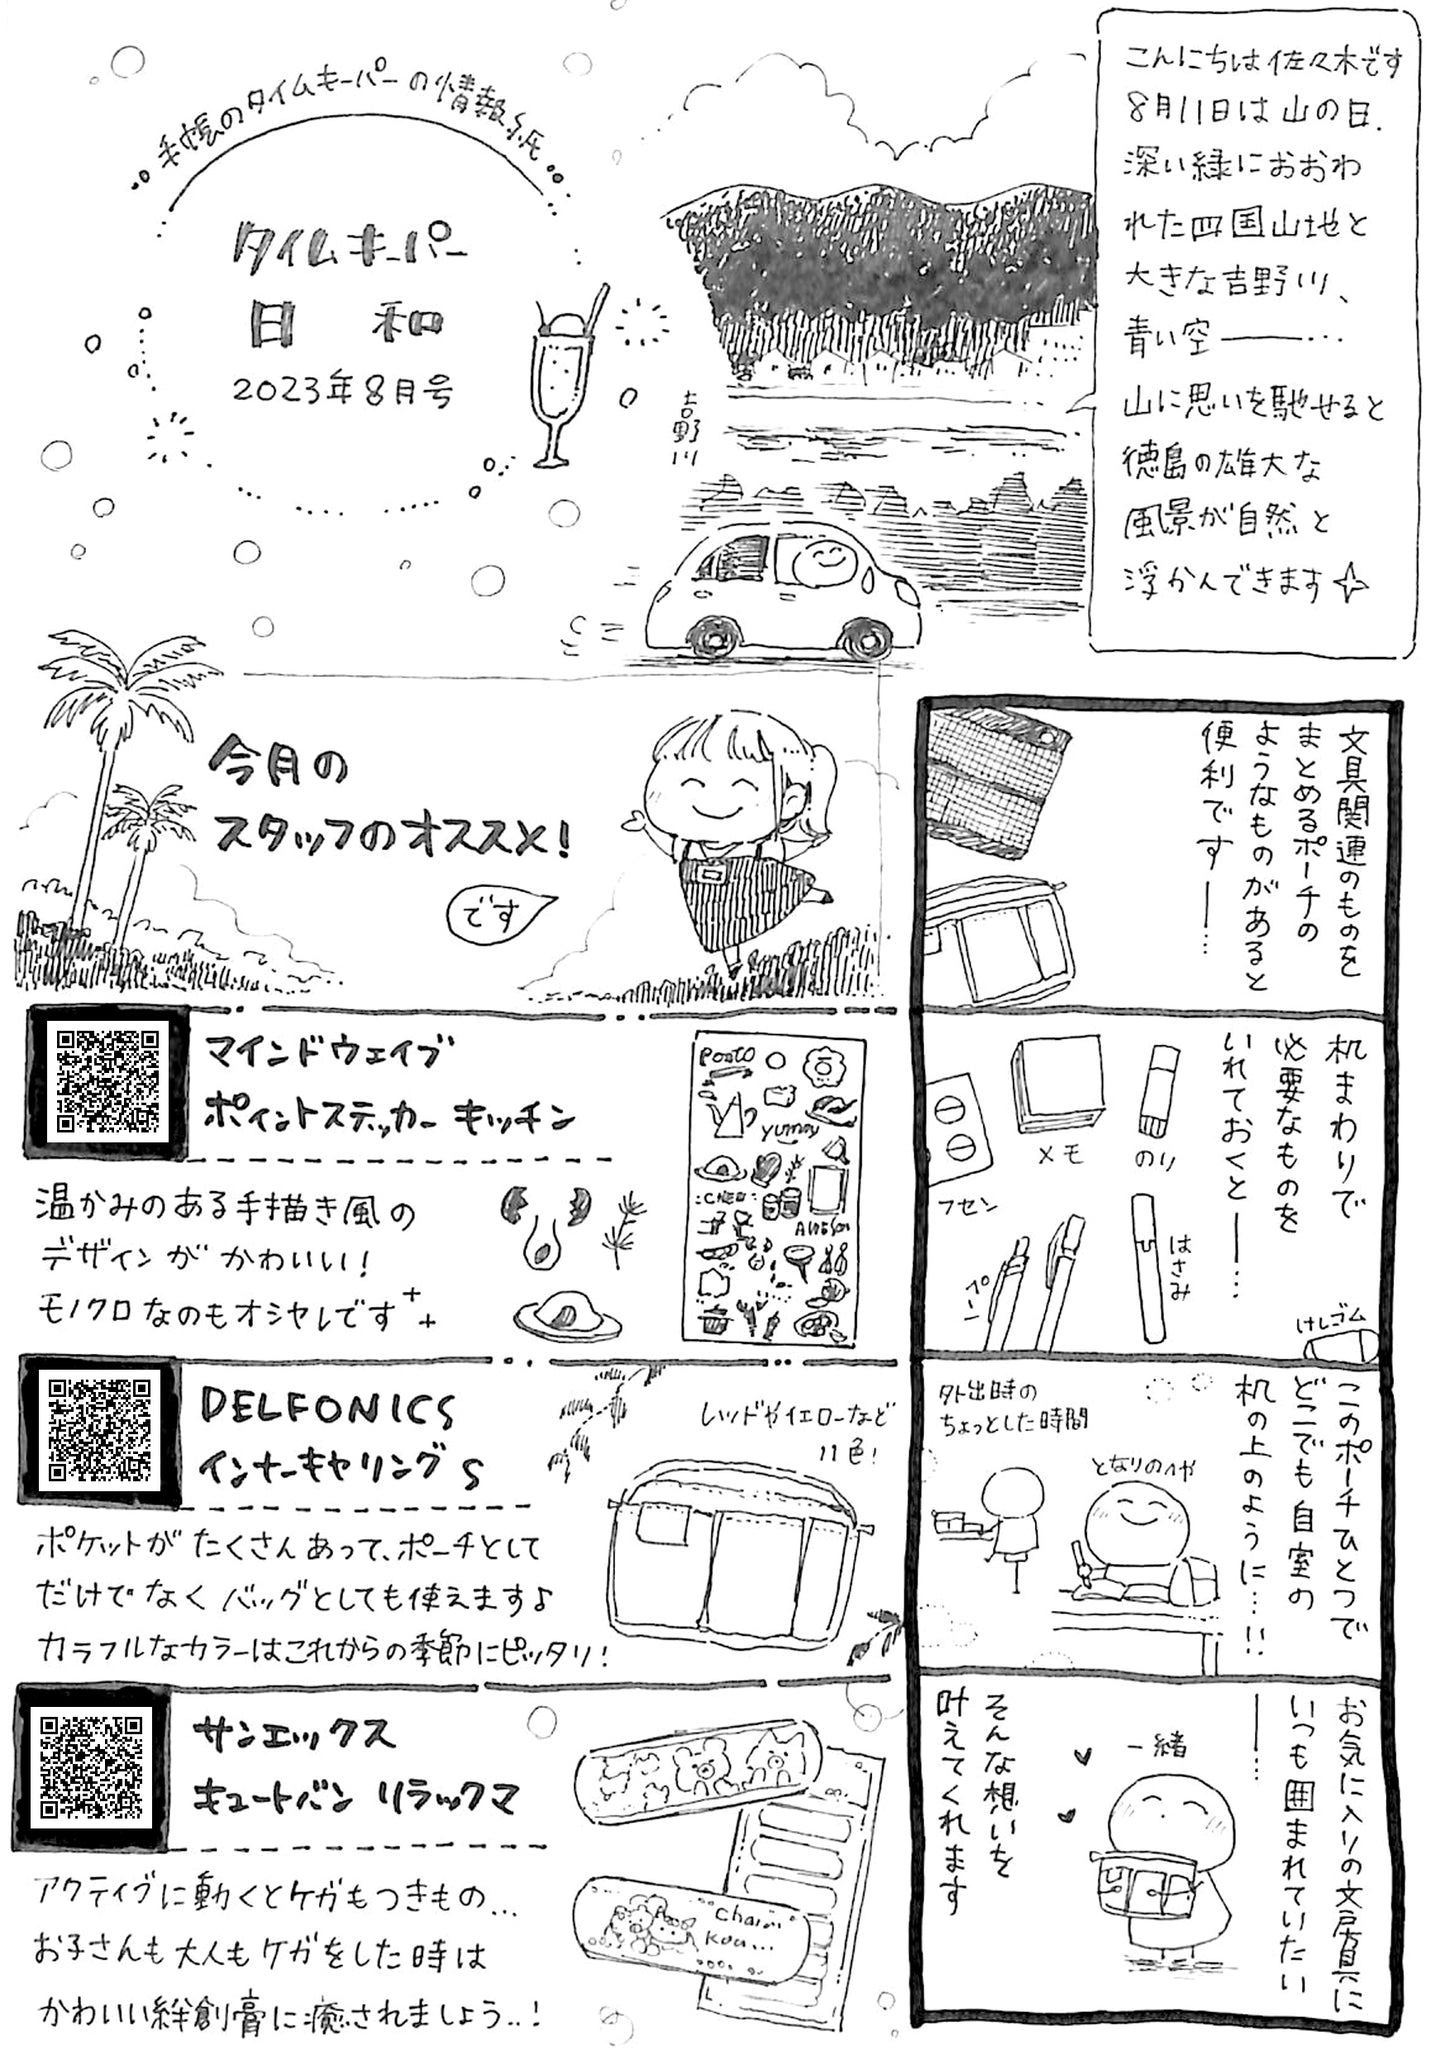 手帳のタイムキーパーの情報紙
タイムキーパー
日和
2023年8月号
こんにちは佐々木です
8月11日は山の日.
深い緑におおわ
れた四国山地と
大きな吉野川、
青い空――…
山に思いを馳せると
徳島の雄大な
風景が自然と
浮かんできます
吉野川
今月の
スタッフのオススメ!
です
マインドウェイブ
ポイントステッカー キッチン
温かみのある手描き風の
デザインが かわいい!
モノクロなのもオシャレです
YUMMY
DELFONICS
インナーキャリング S
レッドやイエローなど
11色!
ポケットが たくさんあって、ポーチとして
だけでなく バッグとしても使えます♪
カラフルなカラーはこれからの季節にピッタリ!
サンエックス
キュートバン リラックマ
アクティブに動くとケガもつきもの…
お子さんも大人もケガをした時は
かわいい絆創膏に癒されましょう..!
文具関連のものを
まとめるポーチの
ようなものがあると
便利です――…
机まわりで
必要なものを
いれておくと――…
メモ
のり
フセン
ペン
はさみ
けしゴム
このポーチひとつで
どこでも自室の
机の上のように…!!
外出時の
ちょっとした時間
となりのへや
お気に入りの文房具に
いつも囲まれていたい
――…
一緒
そんな想いを
叶えてくれます